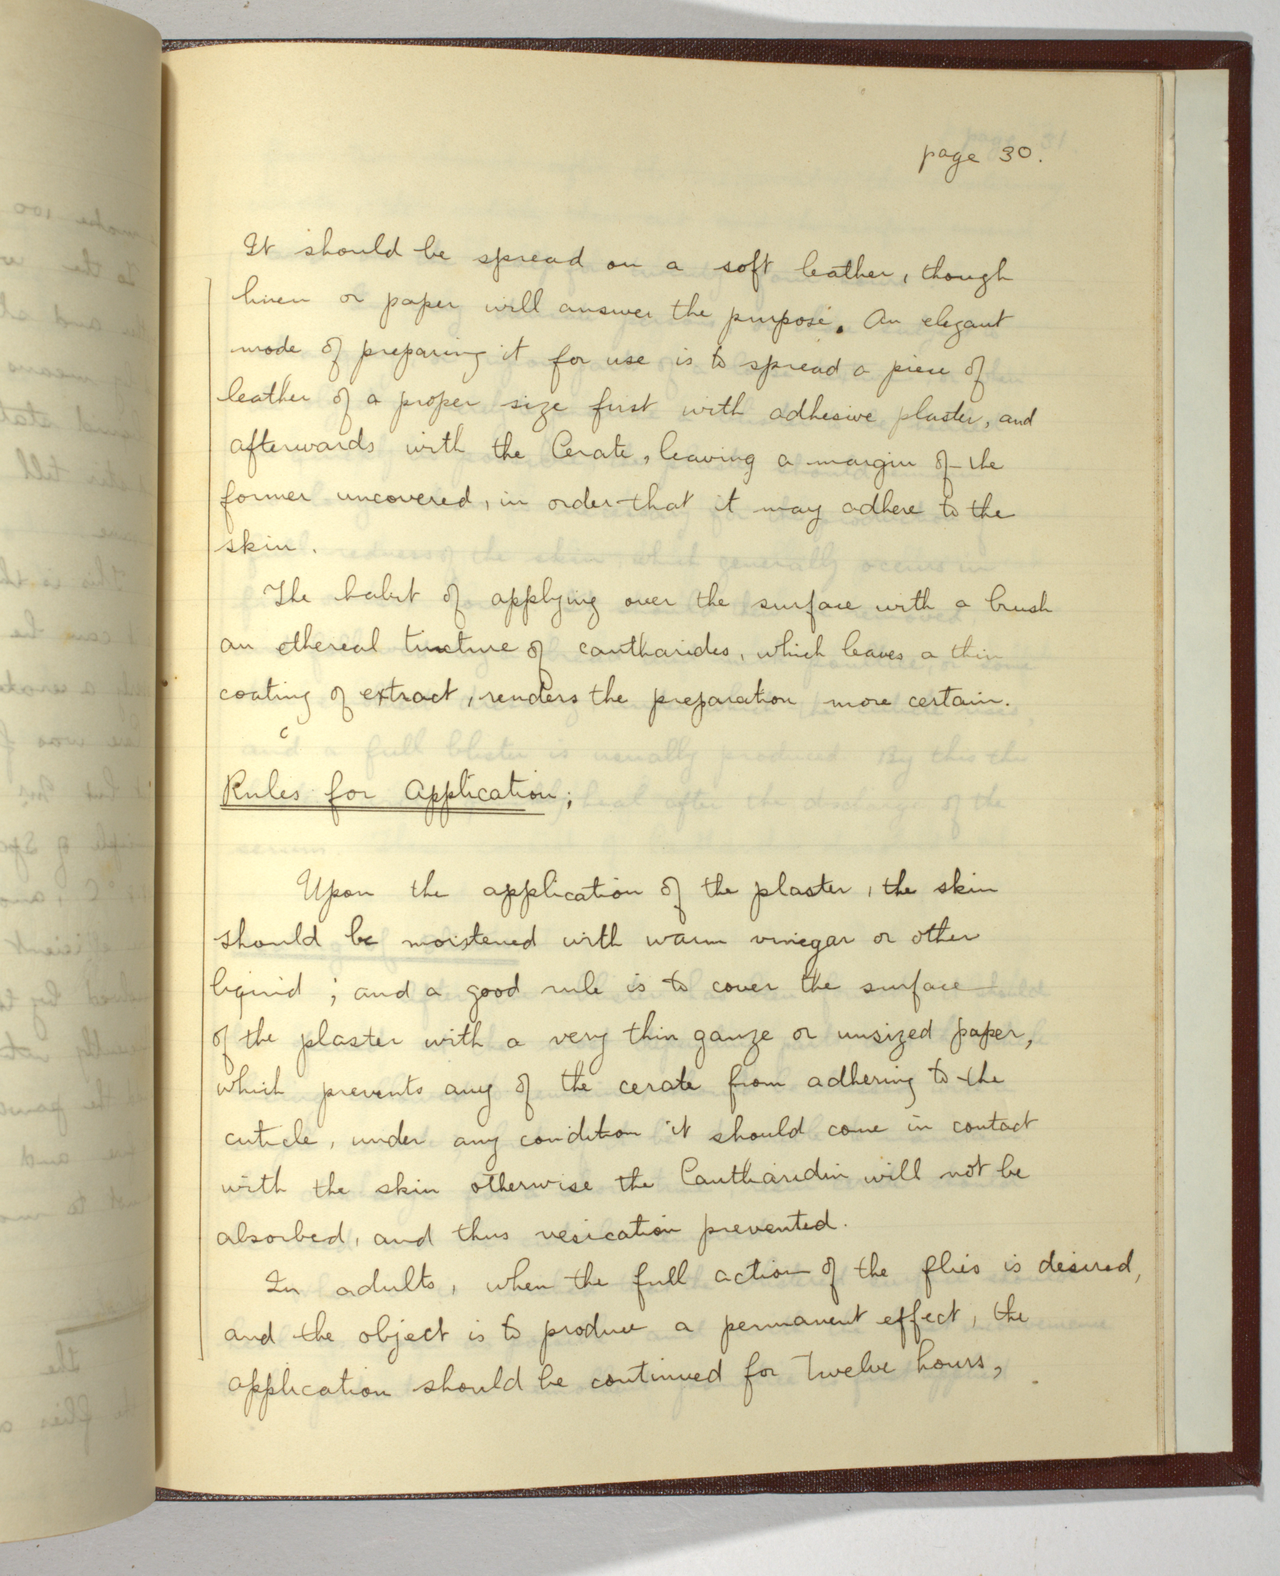 page 30.
It should be spread on a soft leather, though
linen or paper will answer the purpose. An elegant
mode of preparing it for use is to spread a piece of
leather of a proper size first with adhesive plaster, and
afterwards with the Cerate, leaving a margin of the
former uncovered, in order that it may adhere to the
skin.
The habit of applying over the surface with a brush
an ethereal tincture of cantharides, which leaves a thin
coating of extract, renders the preparation more certain.
c
Rules for Application;
Upon the application of the plaster, the skin
should be moistened with warm vinegar or other
liquid; and a good rule is to cover the surface
of the plaster with a very thin gauze or unsized paper,
which prevents any of the cerate from adhering to the
cuticle, under any condition it should come in contact
with the skin otherwise the Cantharidin will not be
absorbed, and thus vesication prevented.
In adults, when the full action of the flies is desired,
and the object is to produce a permanent effect, the
application should be continued for twelve hours,